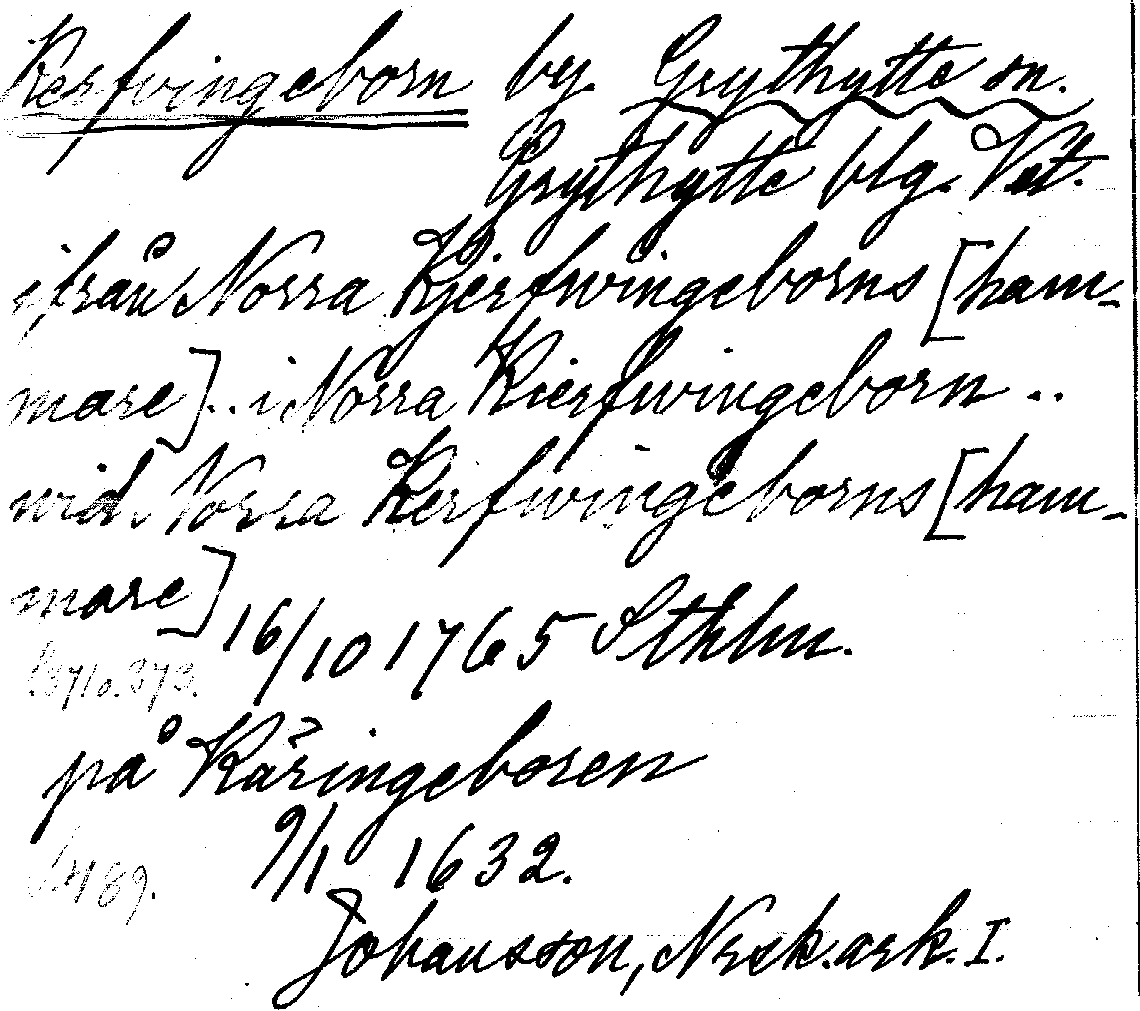 Kerfvingeborn by. Grythytte sn.
Grythytte blg. Vst.
ifrån Norra Kjerfwingeborns [ham-
mare].. i Norra Kierfwingeborn ..
wid Norra Kerfwingeborns [ham-
mare]
16/10 1765 Sthlm.
S. 371 o. 373.
på Käringeboren
9/1 1632.
S. 489.
Johansson, Noraskog. ark. I.